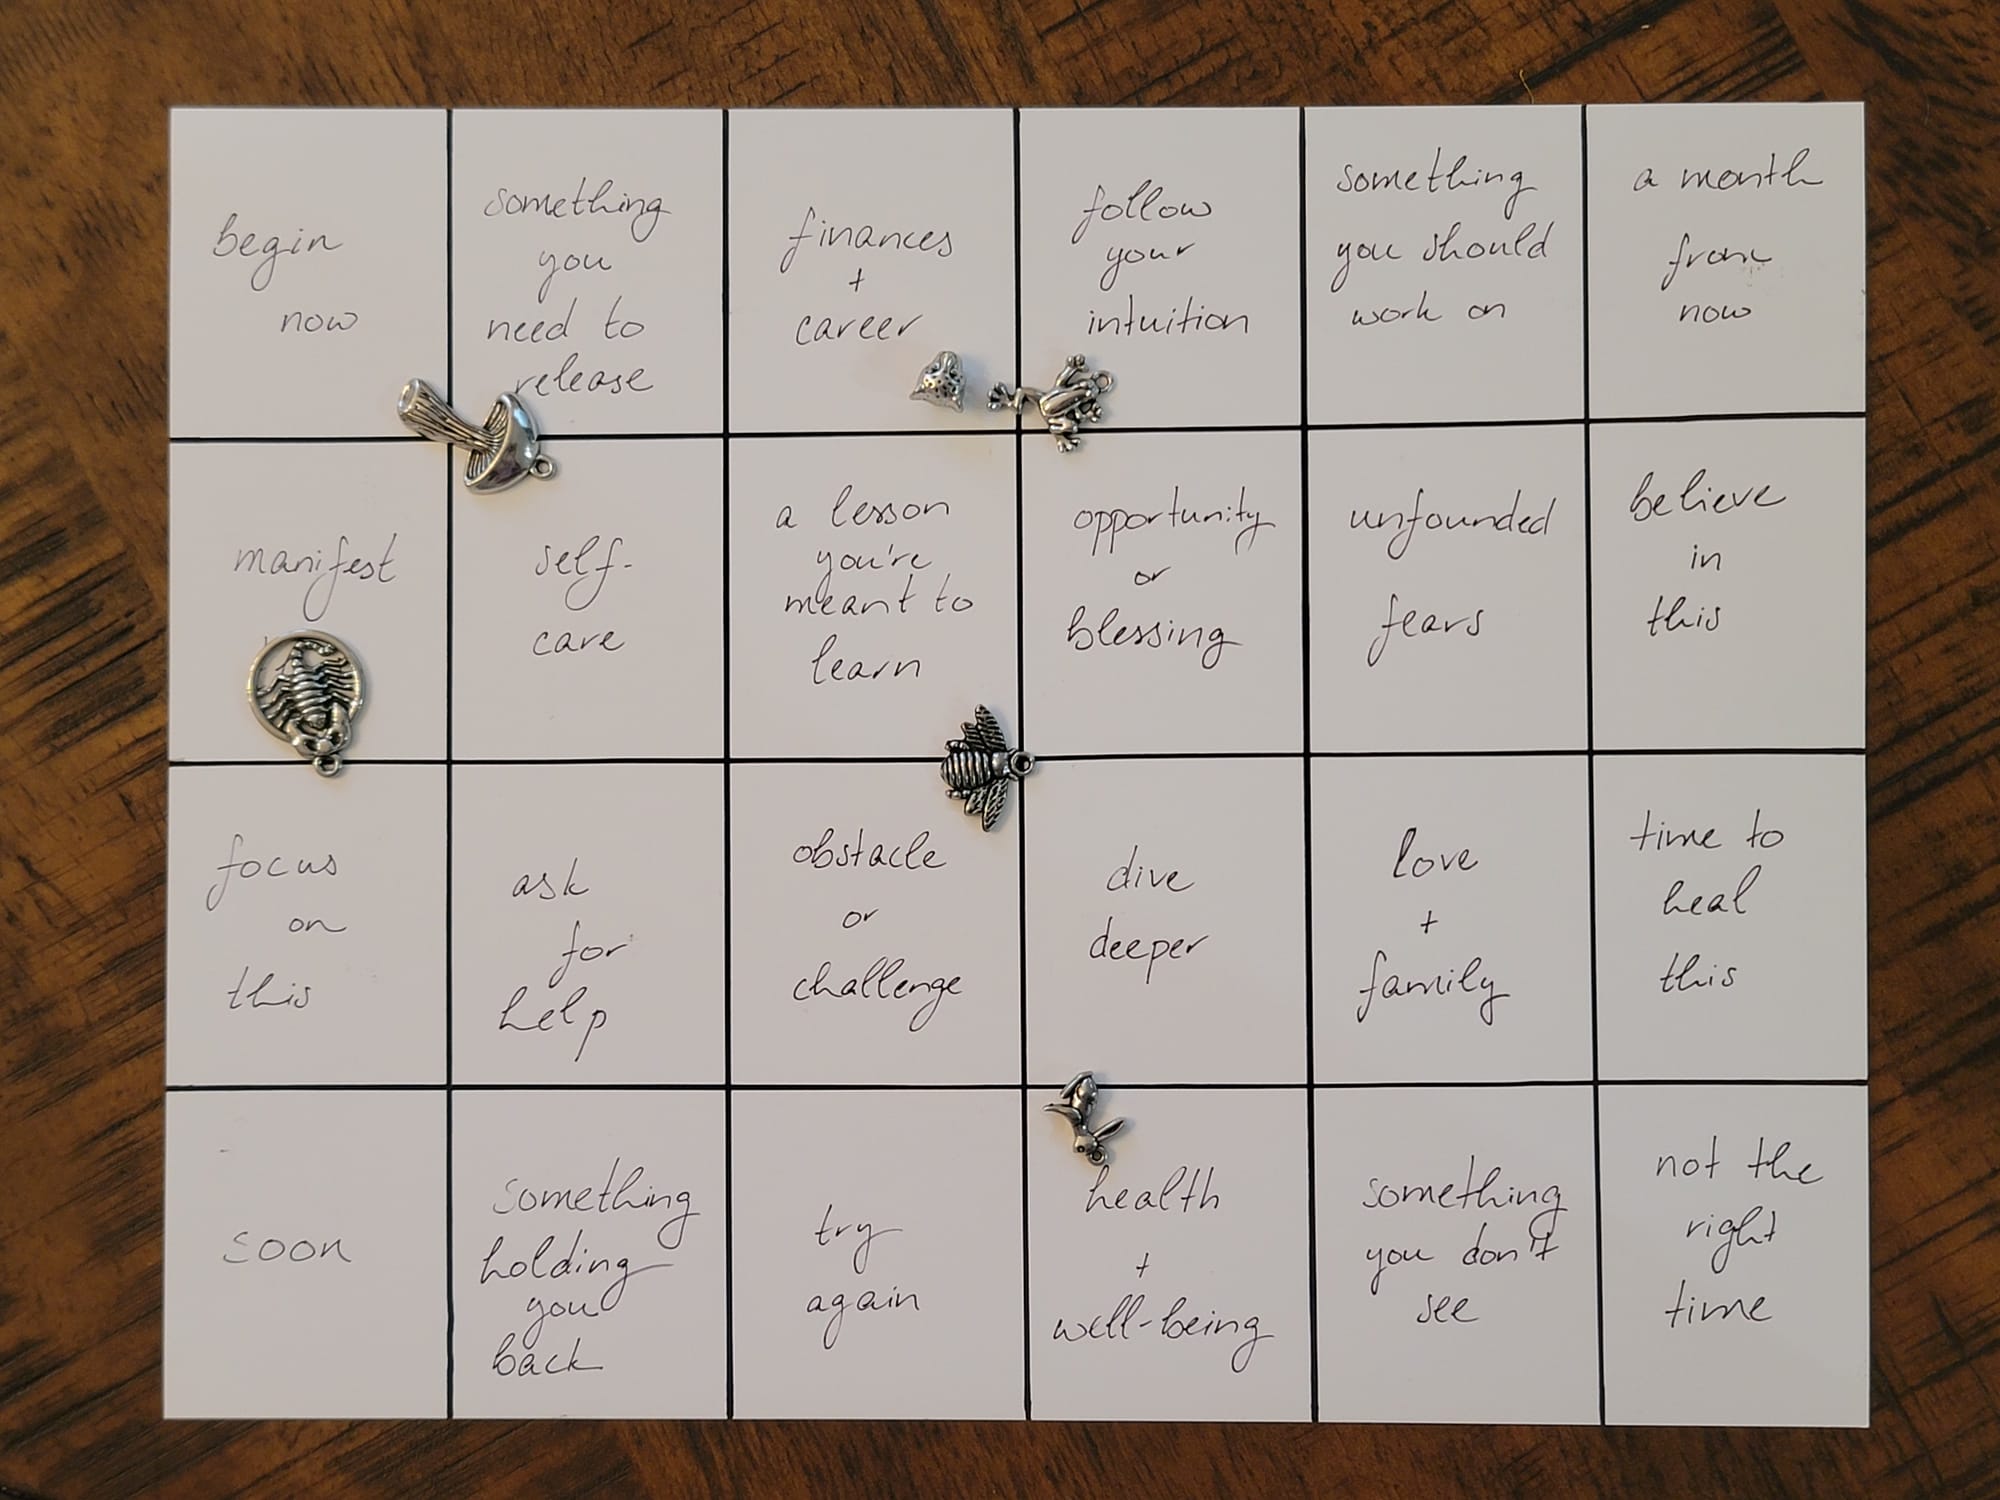 begin
now
something
you
need to
release
finances
+
career
follow
your
intuition
something
you should
work on
a month
from
now
manifest
self-
care
a lesson
you're
meant to
learn
opportunity
or
blessing
unfounded
fears
believe
in
this
focus
on
this
ask
for
help
obstacle
or
challenge
dive
deeper
love
+
family
time to
heal
this
soon
something
holding
you
back
try
again
health
+
well-being
something
you don't
see
not the
right
time